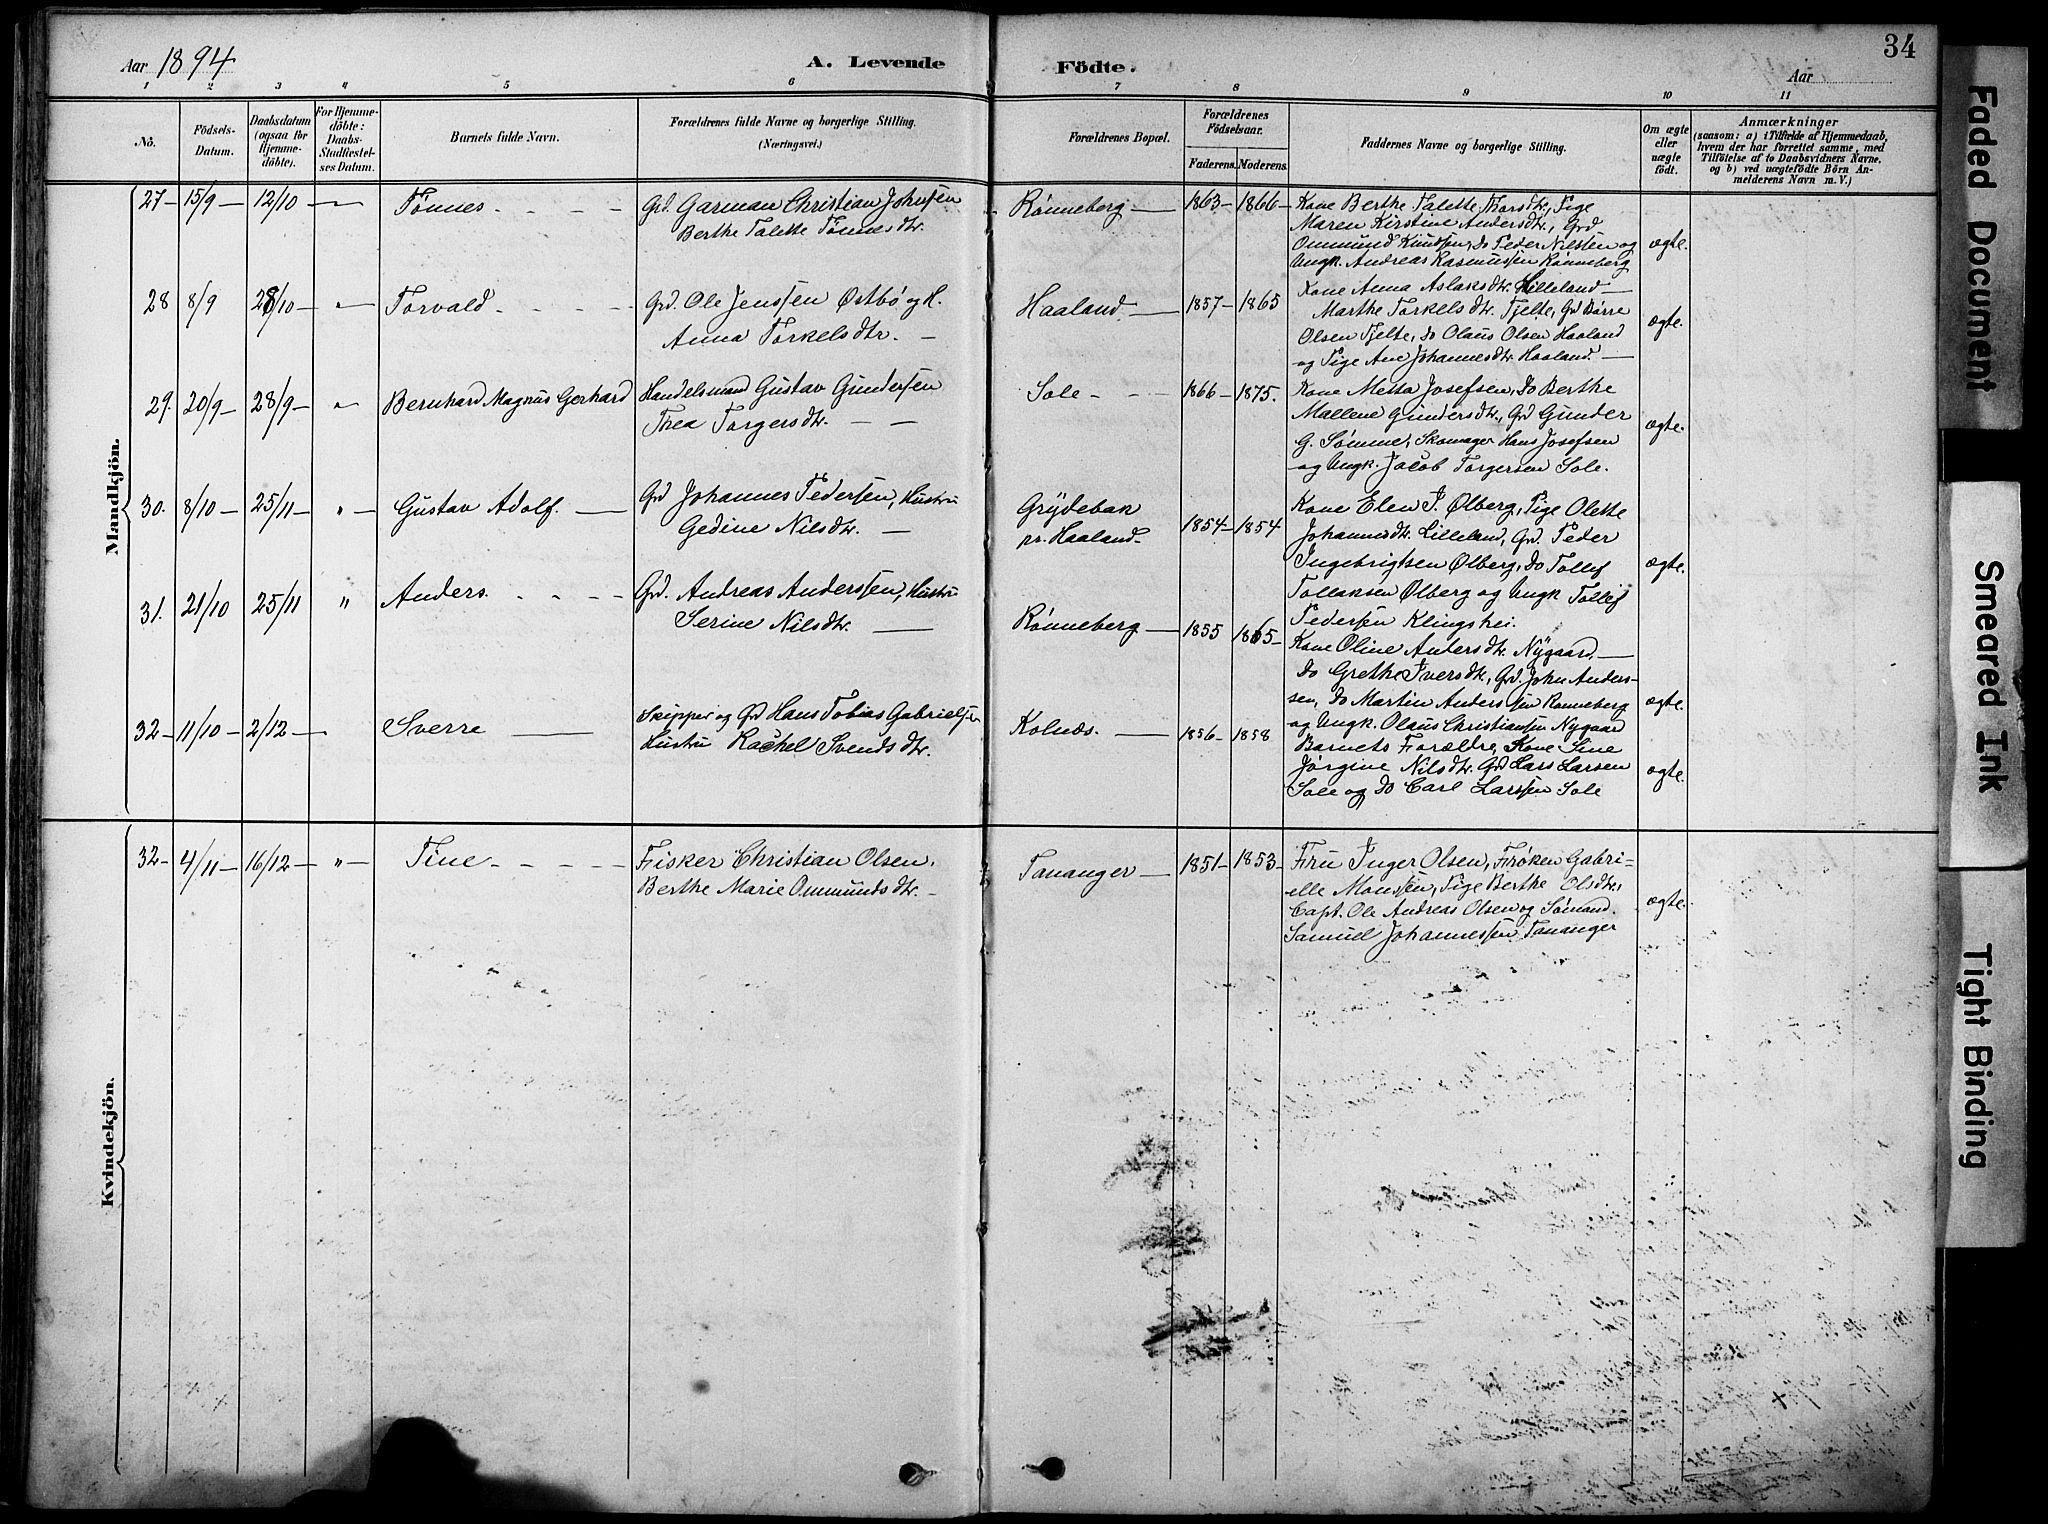 Aar 1894
A. Levende Födte.
Aar
34
1 2 3 4 5 6 7 8 9 10 11
No.
Födsels-Datum.
Daabsdatum (ogsaa for Hjemme-döbte).
For Hjemme-döbte: Daabs-Stadfæstel-ses Datum.
Barnets fulde Navn.
Forældrenes fulde Navne og borgerlige Stilling.
(Næringsvei.)
Forældrenes Bopæl.
Forældrenes Födselsaar.
Faderens. Moderens.
Faddernes Navne og borgerlige Stilling.
Om ægte eller uægte födt.
Anmærkninger
(saasom: a) i Tilfælde af Hjemmedaab,
hvem der har forrettet samme, med
Tilföielse af to Daabsvidners Navne,
og b) ved uægtefödte Börn An-
melderens Navn m. V.)
Mandkjön.
27 - 15/9 - 12/10 - Tønnes
Grd. Garman Christian Johnsen
Berthe Talette Tønnesdtr.
Rønneberg — 1863 - 1866 -
Kone Berthe Talette Thorsdtr, Pige
Maren Kirstine Andersdtr, Grd
Ommund Knudsen, do Peder Nilssen og
Ungk. Andreas Rasmussen Rønneberg
ægte.
28 8/9 28/10 - " - Torvald
Grd. Ole Jenssen Østbø og H.
Anna Torkelsdtr. -
Haaland — 1857 - 1865
Kone Anna Aslaksdtr. Lilleland —
Marthe Torkelsdtr. Tjelte, Grd Børre
Olsen Tjelte, do Olaus Olsen Haaland
og Pige Ane Johannesdtr Haaland. —
ægte.
29. 20/9 - 28/9 - " Bernhard Magnus Gerhard
Handelsmand Gustav Gundersen
Thea Torgersdtr. — —
Sole - 1866 - 1875.
Kone Metta Josefsen, do Berthe
Mallene Gundersdtr, Grd Gunder
G. Sømme, Skomager Hans Josefsen
og Ungk. Jacob Torgersen Sole.
ægte.
30. 8/10 - 25/11 - " - Gustav Adolf. —
Grd Johannes Pedersen, Hustru
Gedine Nilsdtr. —
Grydebak
pr. Haaland - 1854 - 1854
Kone Elen J. Ølberg, Pige Olette
Johannesdtr. Lilleland, Grd. Peder
Ingebrigtsen Ølberg, do Tollef
Tollaksen Ølberg og Ungk Tollef
Pedersen Klingshei.
ægte.
31. 21/10 25/11 " Anders
Grd. Andreas Anderssen, Hustru
Serine Nilsdtr. —
Rønneberg — 1855 1865 -
Kone Oline Andersdtr. Nygaard. —
do Grethe Iversdtr, Grd. John Anders-
sen, do Martin Anderssen Rønneberg
og Ungk. Olaus Christiansen Nygaard
ægte.
32 - 11/10 - 2/12 - Sverre —
Skipper og Grd Hans Tobias Gabrielsen
Hustru Rachel Svendsdtr.
Kolnæs. — 1856 - 1858
Barnets Forældre, Kone Sine
Jørgine Nilsdtr. Grd Lars Larsen
Sole og do Carl Larssen Sole
ægte.
Kvindekjön.
32 - 4/11 - 16/12 - " - Tine
Fisker Christian Olsen,
Berthe Marie Ommundsdtr. -
Tananger — 1851 - 1853 -
Fru Inger Olsen, Frøken Gabri-
elle Monssen, Pige Berthe Olsdtr,
Capt. Ole Andreas Olsen og Sømand.
Samuel Johannessen Tananger
ægte.
Faded Document
Smeared Ink
Tight Binding